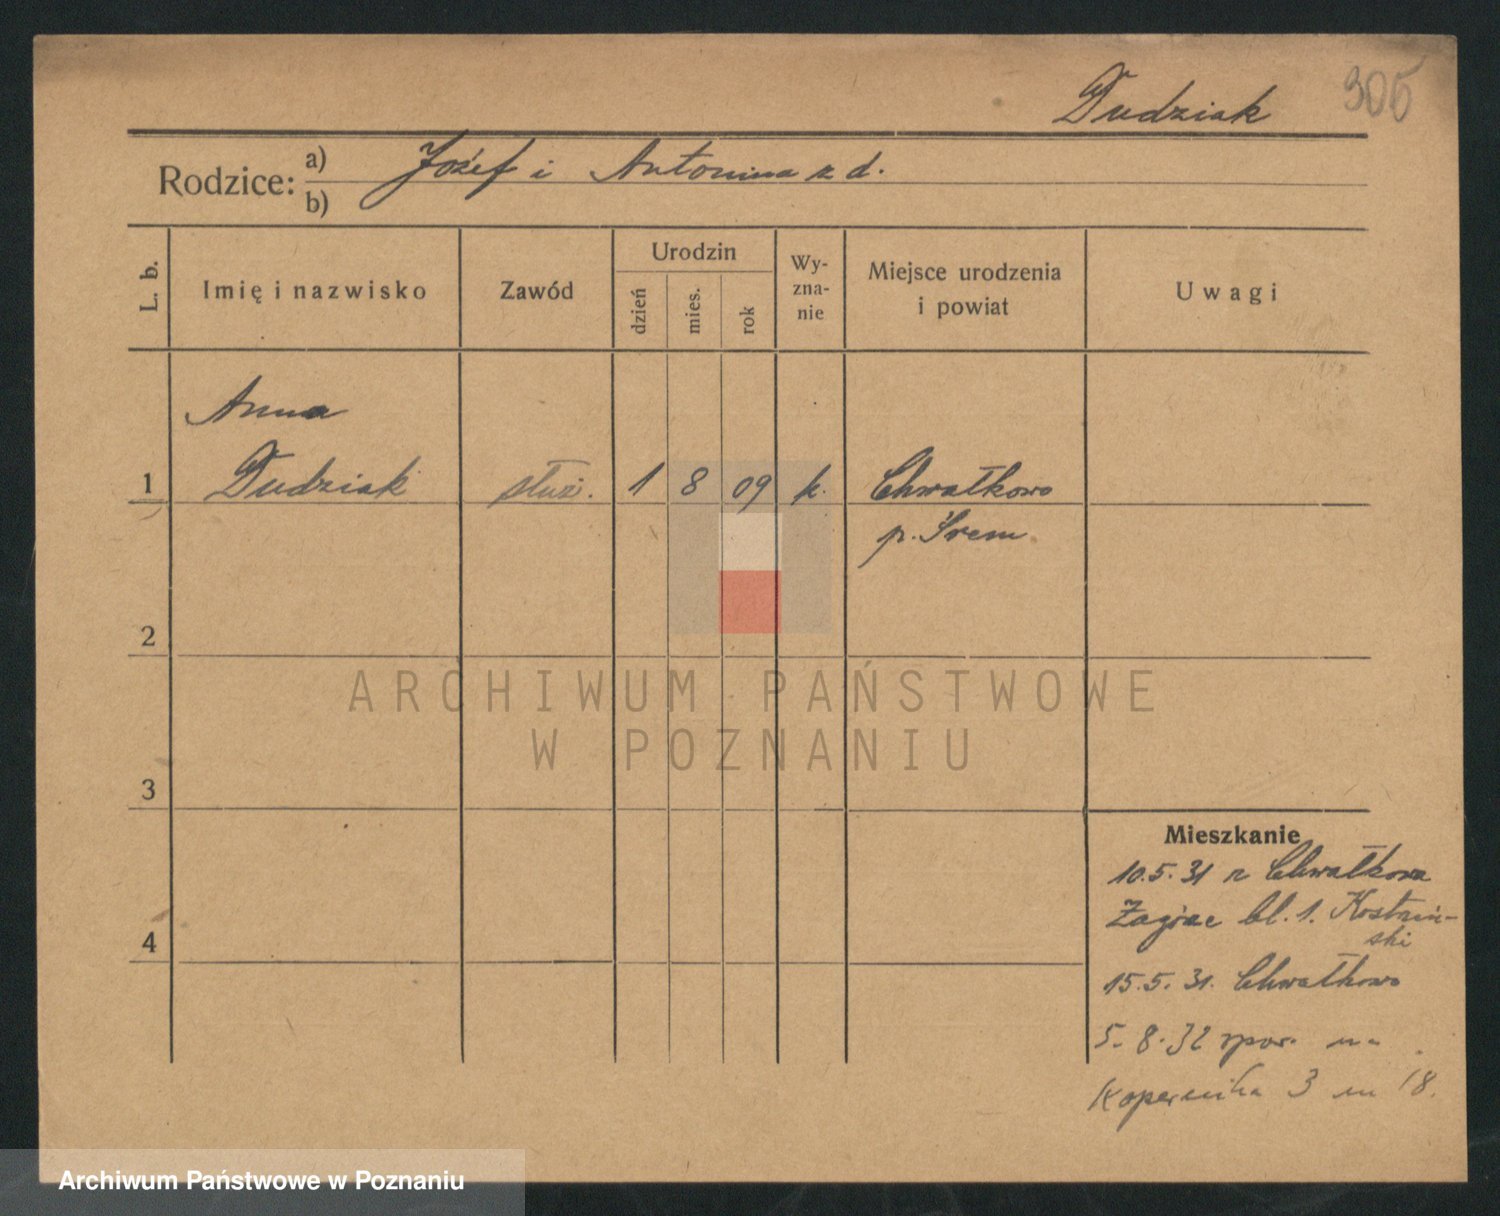 Dudziak 305
Rodzice: a) Józef i Antonina z d.
b)
L. b.
Imię i nazwisko
Zawód
Urodzin
dzień
mies.
rok
Wy-
zna-
nie
Miejsce urodzenia
i powiat
Uwagi
Anna
1 Dudziak służ. 1 8 09 k. Chwałkowo
p. Śrem
2
ARCHIWUM PAŃSTWOWE
W POZNANIU
3
Mieszkanie
10.5.31 z Chwałkowa
bl. 1.
ski
4
15.5.31. Chwałkowo
5.8.32
Kopernika 3 m 18.
Archiwum Państwowe w Poznaniu